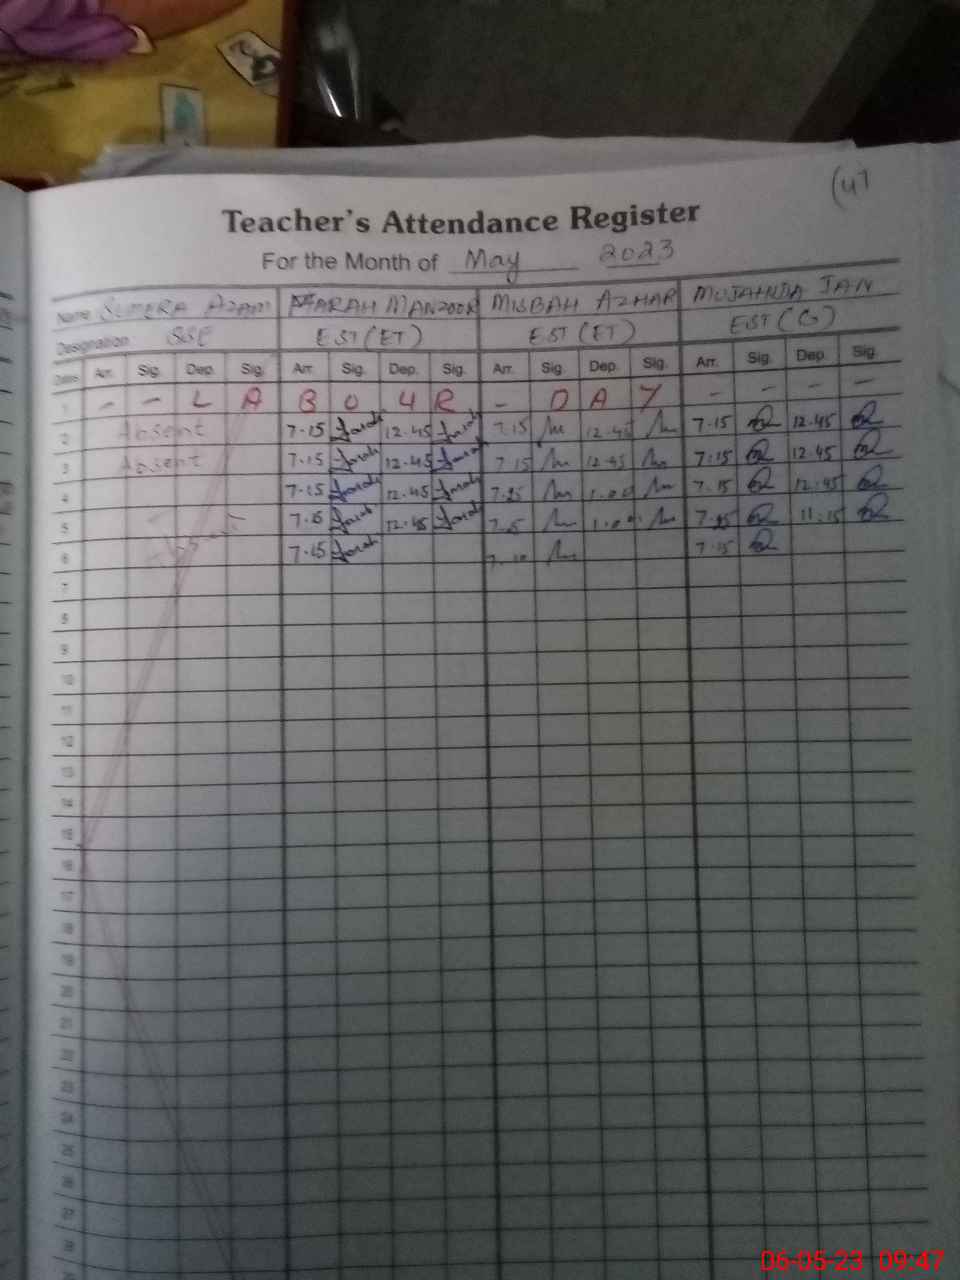 (47
Teacher's Attendance Register
For the Month of May 2023
Name SUMERA Azam FARAH MANZOOR MISBAH AZHAR MUJAHIDA JAN
Designation SSE EST (ET) EST (ET) EST (G)
Dates Arr. Sig. Dep. Sig. Arr. Sig. Dep. Sig. Arr. Sig. Dep. Sig. Arr. Sig. Dep. Sig.
1 - - L A B O U R - D A Y - - - -
2 Absent 7.15 Farah 12.45 Farah 7.15 12.45 7.15 12.45
3 Absent 7.15 Farah 12.45 Farah 7.15 12.45 7.15 12.45
4 7.15 Farah 12.45 Farah 7.15 1.00 7.15 12.45
5 Absent Farah 12.45 Farah 1.00 11.15
6 7.15 Farah 7.15
7
8
9
10
11
12
13
14
15
16
17
18
19
20
21
22
23
24
25
26
27
28
06-05-23 09:47